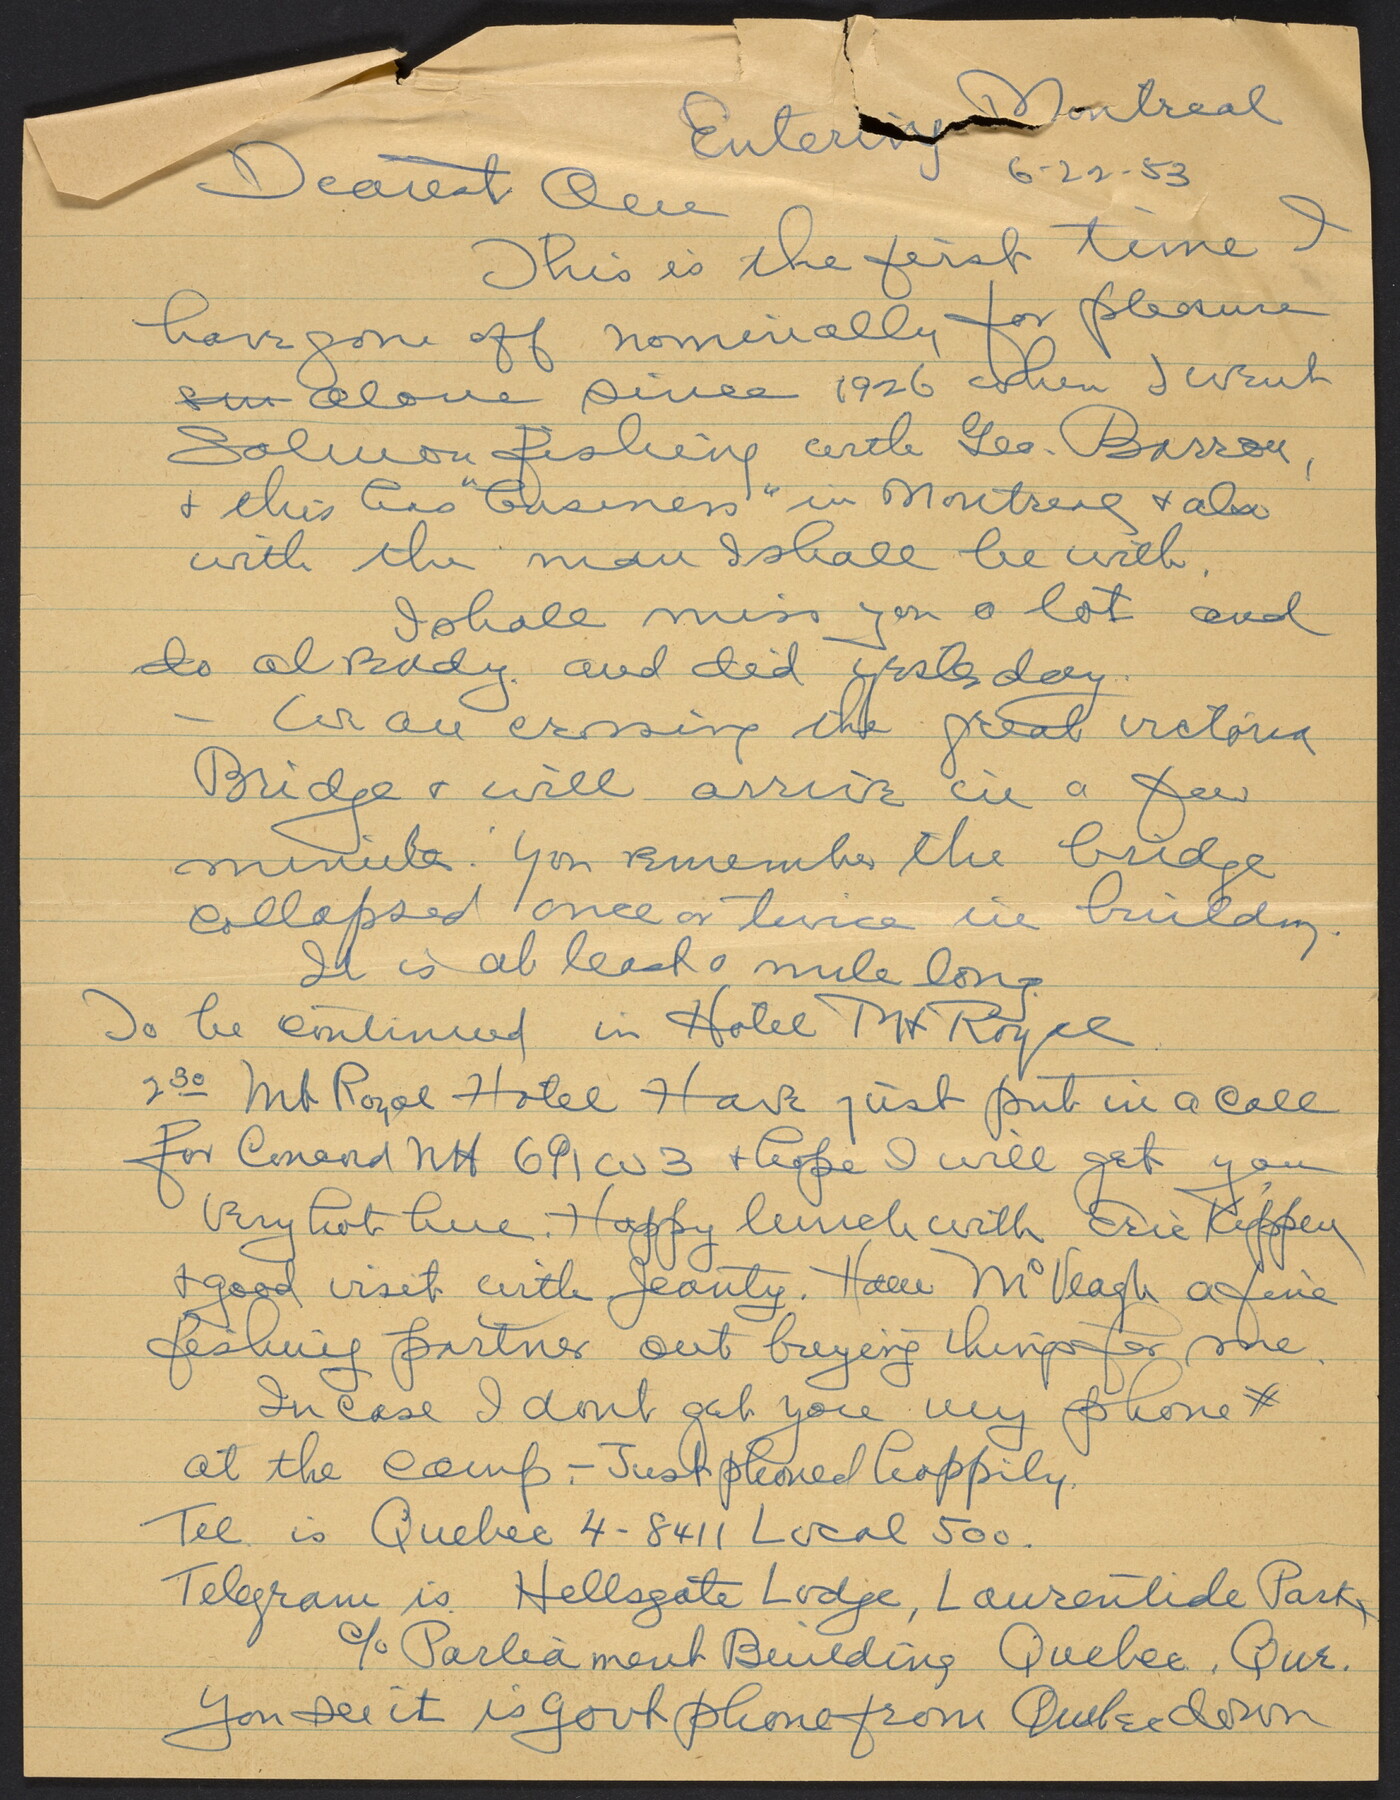 Entering Montreal
6-22-53
Dearest
This is the first time I
have gone off nominally for pleasure
alone since 1926 when I went
Salmon fishing with Geo. Barron,
+ this has "business" in Montreal + also
with the man I shall be with.
I shall miss you a lot and
do already. and did yesterday.
- We are crossing the great victoria
Bridge + will arrive in a few
minutes. You remember the bridge
collapsed once or twice in building.
It is at least a mile long.
To be continued in Hotel Mt Royal
2 30 Mt Royal Hotel Have just put in a call
for Concord NH 691W3 + hope I will get you
Very hot here. Happy lunch with Eric Kippen
+ good visit with Jeanty. Have McVeagh a fine
fishing partner out buying things for me.
In case I dont get you my phone #
at the camp - Just phoned happily.
Tel is Quebec 4-8411 Local 500.
Telegram is Hellsgate Lodge, Laurentide Park,
c/o Parliament Building Quebec, Que.
You see it is govt phone from Quebec down